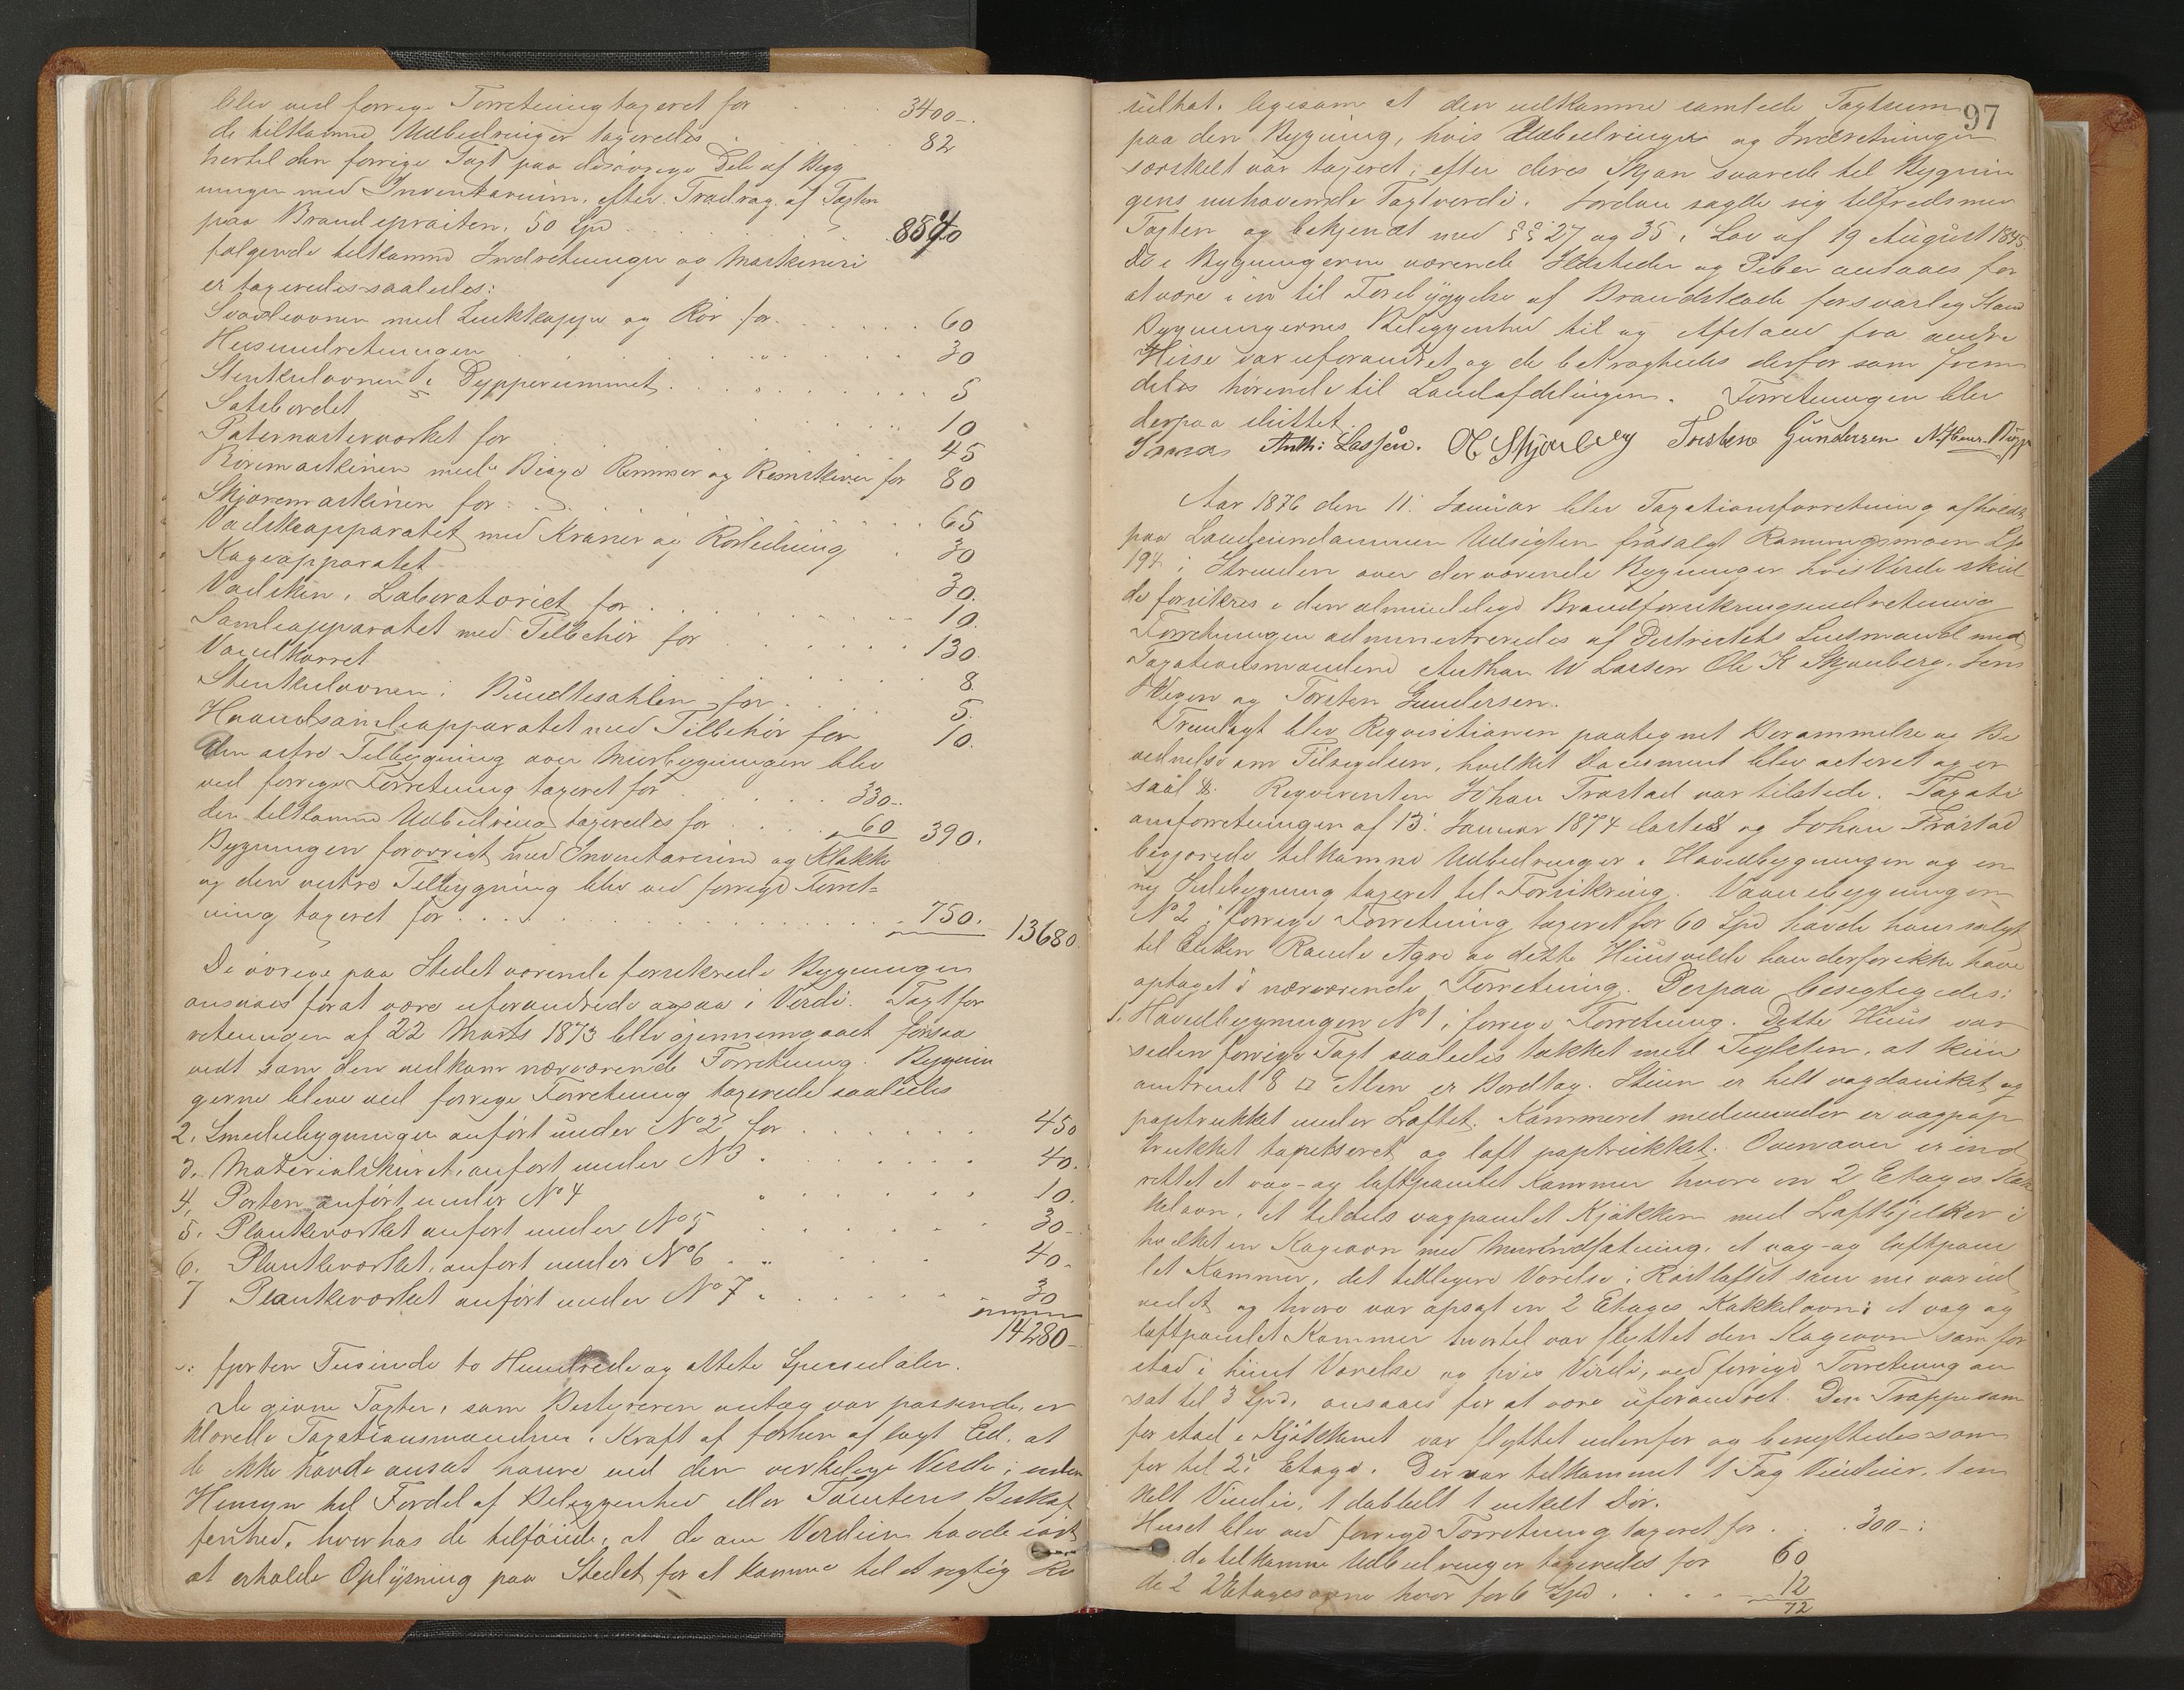 blev ved forrige Forretning taxeret for 3400-.
de tilkomne Udbedringer taxeredes 82
hertil den forrige Taxt paa desøvrige Dele af Byg
ningen med Inventarium, efter Fradrag af Taxten
paa Brandsprøiten, 50 Spd 8540
følgende tilkomne Indretninger og Maskineri
er taxeredes saaledes:
Svovelovnen med Lukkappe og Rør for 60
Husindretningen 30
Stenkulovnen i Dypperummet 5
Satsbordet 10
Paternosterværket for 45
Røremaskinen med Remmer og Remskiver for 80
Skjæremaskinen for 65
Vadskeapparatet med Kraner og Rørledning 30
Kogeapparatet 30.
Vadsken i Laboratoriet for 10.
Samleapparatet med Tilbehør for 130.
Vandkarret 8.
Stenkulovnen i Bundtesahlen for 5.
Haandsamleapparatet med Tilbehør for 10.
den østre Tilbygning over Murbygningen blev
ved forrige Forretning taxeret for 330-.
den tilkomne Udbedring taxeredes for 60 390.
Bygningen forøvrigt med Inventarium og Klokke
og den vestre Tilbygning blev ved forrige Forret=
ning taxeret for 750. 13680.
De øvrige paa Stedet værende forsikrede Bygninger
ansaaes for at være uforandrede ogsaa i Værdi. Taxtfor
retningen af 22 Marts 1873 blev gjennemgaaet forsaa
vidt som den vedkom nærværende Forretning. Bygnin
gerne bleve ved forrige Forretning taxerede saaledes
2. Smedebygningen anført under No 2 for 450
3. Materialskuret, anført under N3 40.
4. Porten anført under No 4 10.
5. Plankeværket anført under No 5 30-
6. Plankeværket, anført under No 6 40-
7 Plankeværket anført under No 7 30
14280-
fjorten Tusinde to Hundrede og ottete Speciedaler.
De givne Taxter, som Bestyreren antog var passende, er
klærede Taxationsmændene i Kraft af forhen aflagt Eed, at
de ikke havde ansat høiere end den virkelige Værdi, uden
Hensyn til Fordel af Beliggenhed eller Tomtens Beskaf
fenhed, hvorhos de tilføiede, at de om Værdien havde søgt
at erholde Oplysning paa Stedet for at komme til et rigtig Re
97
sultat, ligesom at den udkomne samlede Taxtsum
paa den Bygning, hvis Udbedringer og Indretninger
særskilt var taxeret, efter deres Skjøn svarede til Bygnin
gens nuhavende Taxtværdi. Jordan sagde sig tilfreds med
Taxten og bekjendt med §§ 27 og 35 i Lov af 19 August 1845
De i Bygningerne værende Ildsteder og Piber ansaaes for
at være i en til Forebyggelse af Brandskade forsvarlig Stand
Bygningernes Beliggenhed til og Afstand fra andre
Huse var uforandret og de betragtedes derfor som frem
deles hørende til Landafdelingen. Forretningen blev
derpaa sluttet.
Anth: Lassen. O Skjønberg Torsten Gundersen
Aar 1876 den 11. Januar blev Taxationsforretning afholdt
paa Landeiendommen Udsigten frasalgt Ramungsmoen
194 i Stranden over derværende Bygninger hvis Værdi skul
de forsikres i den almindelige Brandforsikringsindretning
Forretningen administreredes af Distriktets Lensmand med
Taxationsmændene Anthon W Larsen Ole K Skjønberg, Jens
og Torsten Gundersen.
Fremlagt blev Requisitionen paategnet Berammelse og Be
vidnelse om Tilsigelsen, hvilket Document blev acteret og er
saal Reqvirenten Johan Frøstad var tilstede. Taxati
onsforretningen af 13. Januar 1874 læstes og Johan Frøstad
begjærede tilkomne Udbedringer i Hovedbygningen og en
ny Sidebygning taxeret til Forsikring. Vaanebygningen
No 2 i forrige Forretning taxeret for 60 Spd havde han solgt
til Enken Agre og dette Huus vilde han derfor ikke have
optaget i nærværende Forretning. Derpaa besigtigedes:
1. Hovedbygningen No 1 i forrige Forretning. Dette Huus var
siden forrige Taxt saaledes takket med Teglsten, at kun
omtrent 8 □ Alen er Bordtag. Stuen er helt vægpanelet og
paptrukket under Loftet. Kammeret nedenunder er vægpap
trukket tapetseret og loft paptrukket. Ovenover er ind
rettet et væg- og loftpanelet Kammer hvori en 2 Etages Kak
kelovn, et tildels vægpanelet Kjøkken med Loftbjelker i
hvilket en Kogeovn med Murindfatning, et væg- og loftpane
let Kammer, det tidligere Værelse i Røstloftet som nu var ud
videt og hvori var opsat en 2 Etages Kakkelovn; et væg og
loftpanelet Kammer hvortil var flyttet den Kogeovn som for
stod i hiint Værelse og hvis Værdi, ved forrige Forretning an
sat til 3 Spd, ansaaes for at være uforandret. Den Trappe som
før stod i Kjøkkenet var flyttet udenfor og benyttedes som
før til 2. Etage. Der var tilkommet 1 Fag Vinduer, 1 en
kelt Vindu, 1 dobbelt 1 enkelt Dør.
Huset blev ved forrige Forretning taxeret for 300-:
de tilkomne Udbedringer taxeredes for 60
de 2 2 Etages ovne hver for 6 Spd 12
72